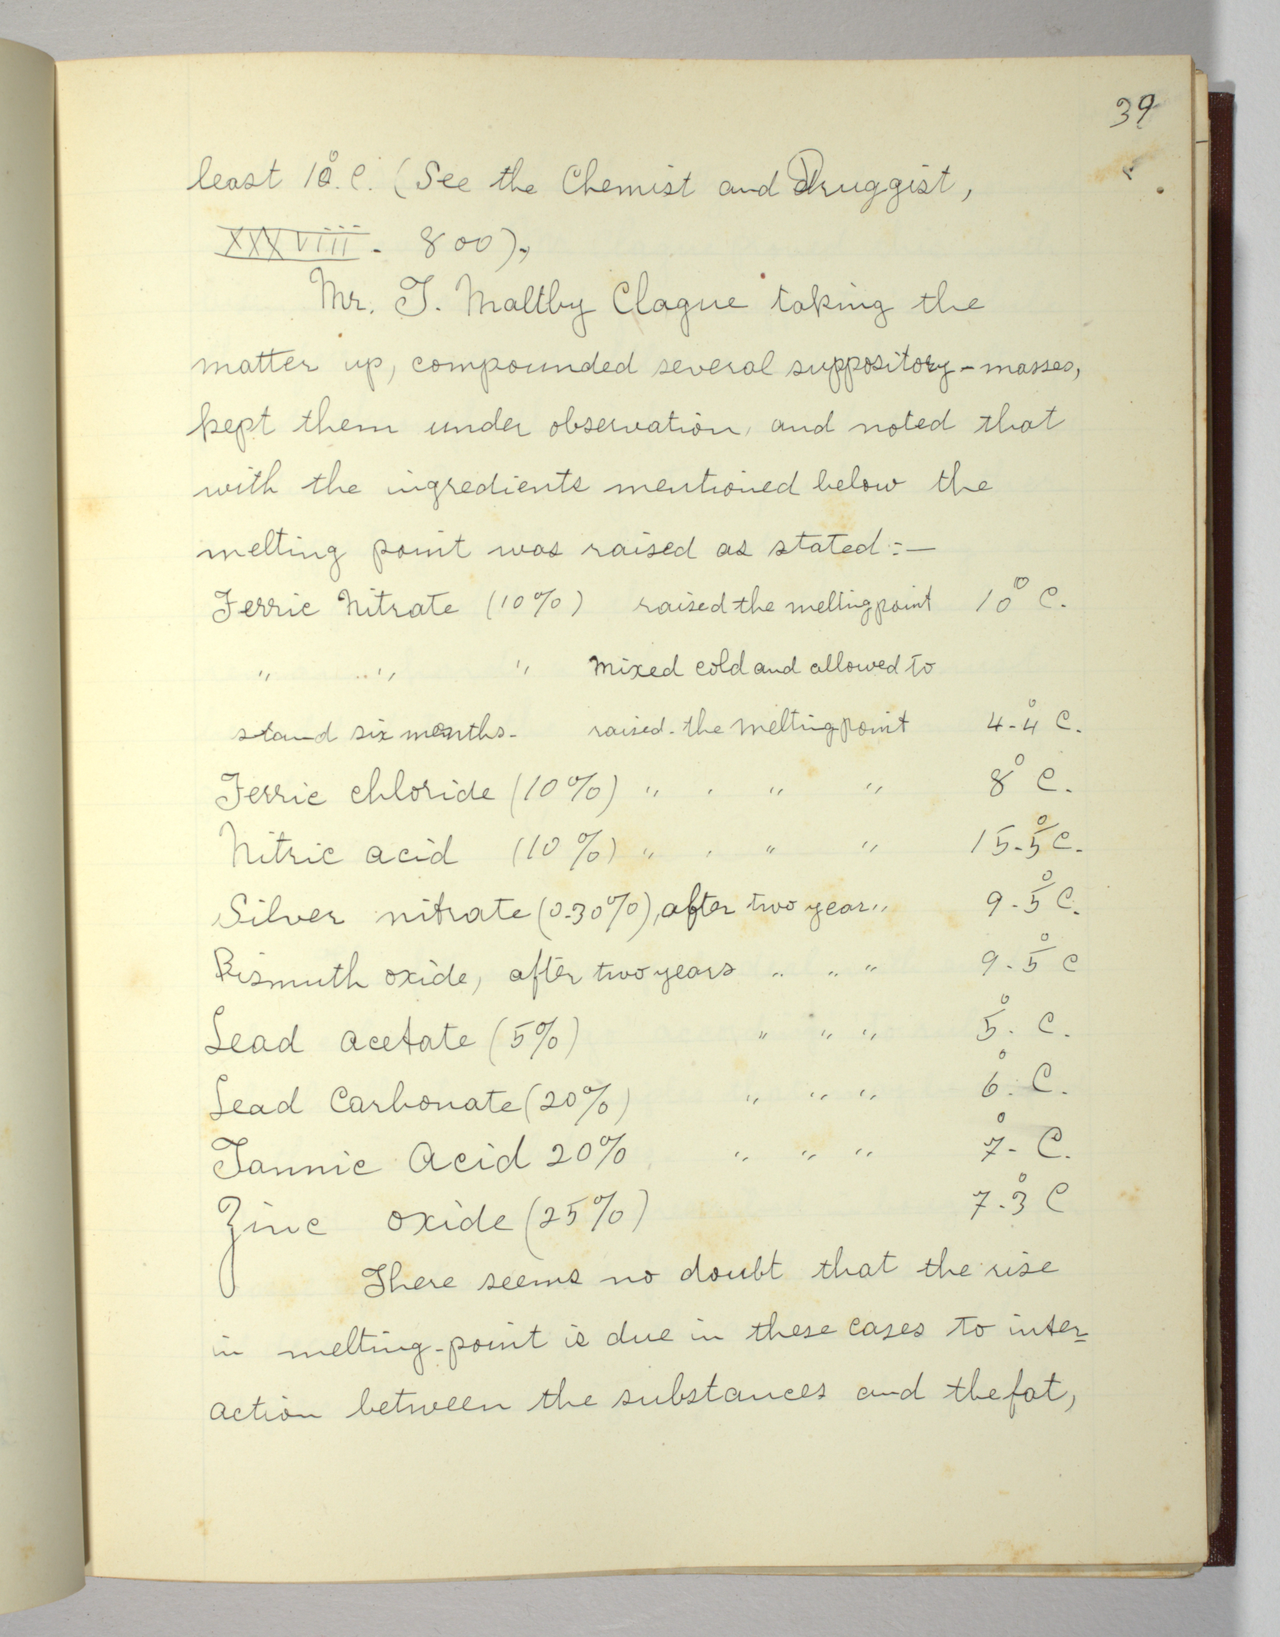 39
least 10°. C. (See the Chemist and Druggist,
XXXViii. 800).,
Mr. T. Maltby Clague taking the
matter up, compounded several suppository-masses,
kept them under observation, and noted that
with the ingredients mentioned below the
melting point was raised as stated :—
Ferric Nitrate (10%) raised the melting point 10° C.
" " " Mixed cold and allowed to
stand six months. raised. the melting point 4.4° C.
Ferric chloride (10%) " . " " 8° C.
Nitric acid (10%) " . " " 15.5° C.
Silver nitrate (0.30%), after two year " 9.5° C.
Bismuth oxide, after two years " " " 9.5° C
Lead acetate (5%) " " " 5°. C.
Lead Carbonate (20%) " " " 6°. C.
Tannic Acid 20% " " " 7°. C.
Zinc oxide (25%) 7.3° C
There seems no doubt that the rise
in melting-point is due in these cases to inter=
action between the substances and the fat,